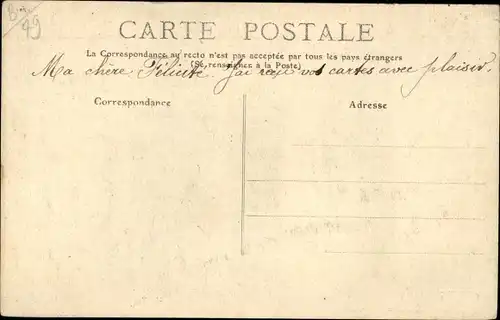 CARTE POSTALE
La Correspondance au recto n'est pas acceptée par tous les pays étrangers
(Se renseigner à la Poste)
Ma chère Félicité. J'ai reçu vos cartes avec plaisir.
Correspondance
Adresse